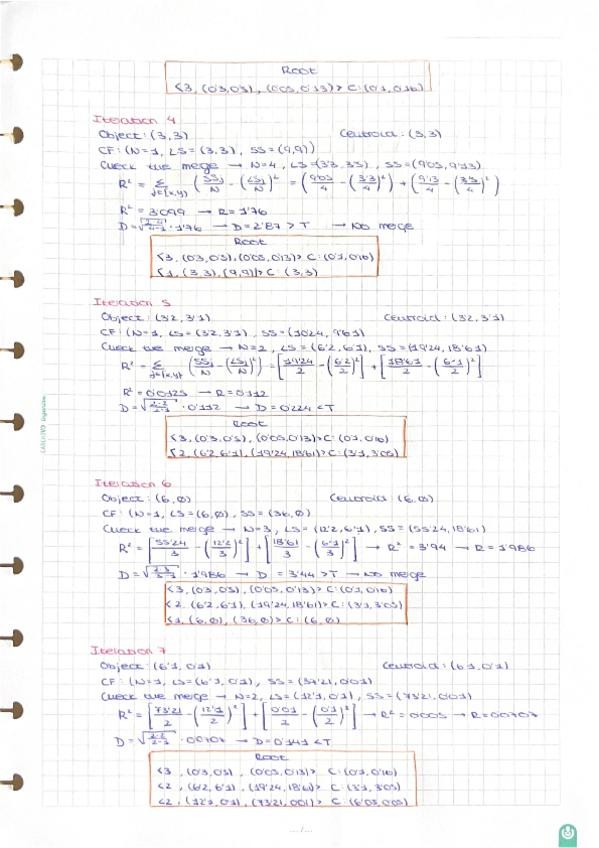 Root
<3, (0'3,0'5), (0'05,0'13)> C:(0'1,0'16)
Iteration 4
Object: (3,3)
Centroid: (3,3)
CF: (N=1, LS=(3,3), SS=(9,9))
Check the merge → N=4, LS=(3'3,3'5), SS=(9'05,9'13)
R² = Σ j∈{x,y} (SSj/N - (LSj/N)²) = (9'05/4 - (3'3/4)²) + (9'13/4 - (3'5/4)²)
R² = 3'099 → R=1'76
D=√(2·4/4-1) · 1'76 → D=2'87 > T → No merge
Root
<3, (0'3,0'5), (0'05,0'13)> C:(0'1,0'16)
<1, (3,3), (9,9)> C: (3,3)
Iteration 5
Object: (3'2, 3'1)
Centroid: (3'2, 3'1)
CF: (N=1, LS=(3'2,3'1), SS=(10'24, 9'61)
Check the merge → N=2, LS=(6'2,6'1), SS=(19'24,18'61)
R² = Σ j∈{x,y} (SSj/N - (LSj/N)²) = [19'24/2 - (6'2/2)²] + [18'61/2 - (6'1/2)²]
R² = 0'0125 → R=0'112
D=√(2·2/2-1) · 0'112 → D=0'224 < T
Root
<3, (0'3,0'5), (0'05,0'13)> C:(0'1,0'16)
<2, (6'2,6'1), (19'24,18'61)> C:(3'1,3'05)
CUADERNO Inteligente
Iteration 6
Object: (6,0)
Centroid: (6,0)
CF: (N=1, LS=(6,0), SS=(36,0)
Check the merge → N=3, LS=(12'2,6'1), SS=(55'24,18'61)
R² = [55'24/3 - (12'2/3)²] + [18'61/3 - (6'1/3)²] → R² = 3'94 → R=1'986
D=√(2·3/3-1) · 1'986 → D = 3'44 > T → No merge
<3, (0'3,0'5), (0'05,0'13)> C:(0'1,0'16)
<2, (6'2,6'1), (19'24,18'61)> C:(3'1,3'05)
<1, (6,0), (36,0)> C: (6,0)
Iteration 7
Object: (6'1, 0'1)
Centroid: (6'1,0'1)
CF: (N=1, LS=(6'1,0'1), SS=(37'21,0'01)
Check the merge → N=2, LS=(12'1,0'1), SS=(73'21,0'01)
R² = [73'21/2 - (12'1/2)²] + [0'01/2 - (0'1/2)²] → R² = 0'005 → R=0'0707
D=√(2·2/2-1) · 0'0707 → D=0'141 < T
Root
<3, (0'3,0'5), (0'05,0'13)> C:(0'1,0'16)
<2, (6'2,6'1), (19'24,18'61)> C:(3'1,3'05)
<2, (12'1,0'1), (73'21,0'01)> C:(6'05,0'05)
.../...